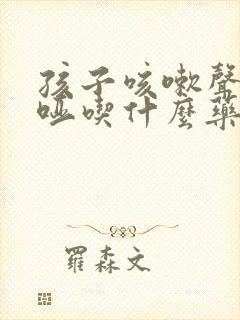 孩子咳嗽聲
啞喫什麼藥
羅森文